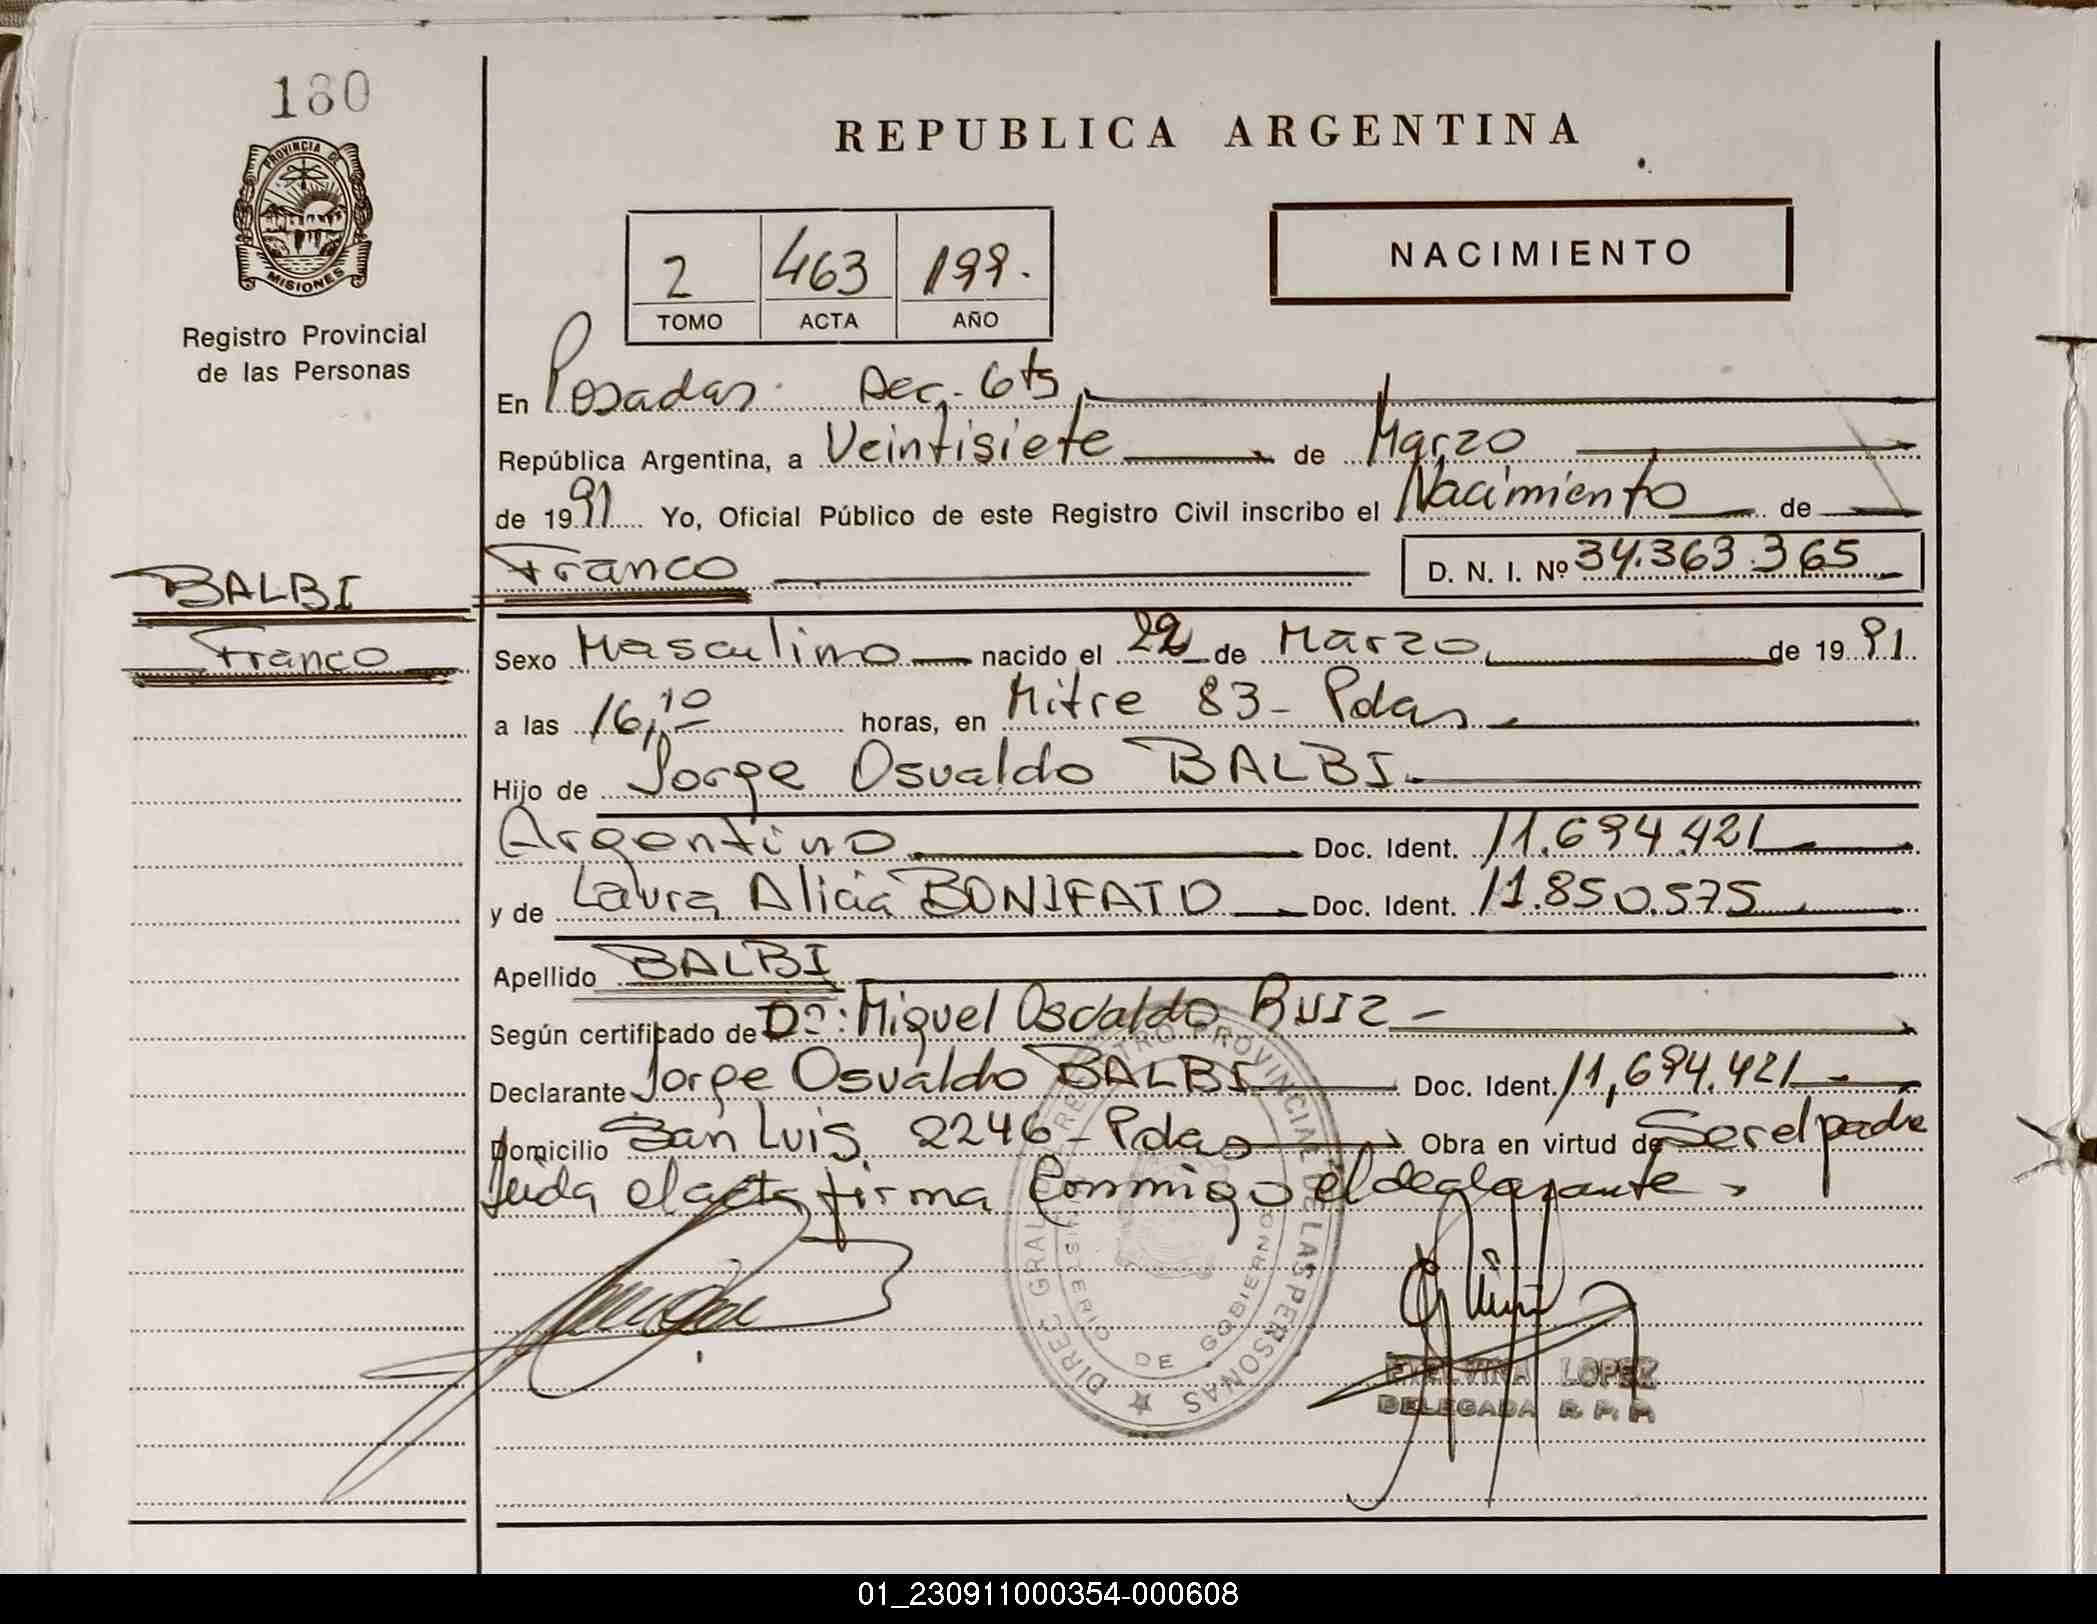 180
PROVINCIA DE
MISIONES
Registro Provincial
de las Personas
REPUBLICA ARGENTINA
NACIMIENTO
2 463 199.
TOMO ACTA AÑO
En Posadas. Sec. 6ta
República Argentina, a Veintisiete de Marzo
de 1991 Yo, Oficial Público de este Registro Civil inscribo el Nacimiento de
BALBI
Franco
Franco D. N. I. Nº 34.363.365
Sexo Masculino nacido el 22 de Marzo de 1991
a las 16,10 horas, en Mitre 83 - Pdas
Hijo de Jorge Osvaldo BALBI
Argentino Doc. Ident. 11.694.421
y de Laura Alicia BONIFATO Doc. Ident. 11.850.575
Apellido BALBI
Según certificado de Dr: Miguel Osvaldo RUIZ -
Declarante Jorge Osvaldo BALBI Doc. Ident. 11,694.421
Domicilio San Luis 2246 - Pdas Obra en virtud de Ser el padre
Leida el acta firma Conmigo el declarante.
DIREC GRAL REGISTRO PROVINCIAL DE LAS PERSONAS
MINISTERIO DE GOBIERNO
ETELVINA LOPEZ
DELEGADA R. P. P.
01_230911000354-000608